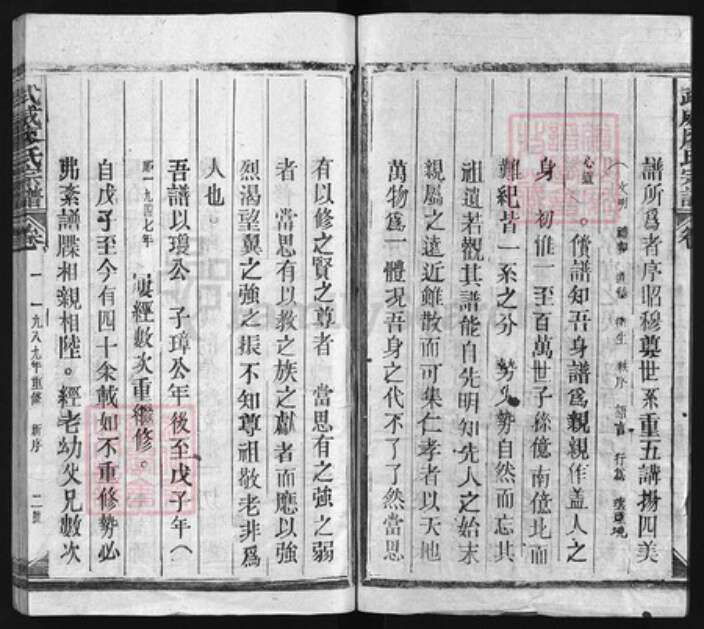 譜所爲者序昭穆奠世系重五講揚四美
（文明 禮貌 清絜 衛生 秩序 語言 行爲 環境
心靈 。備譜知吾身譜爲親親作盖人之
身 初惟一至百萬世子孫億南億北而
難紀皆一系之分 勢久勢自然而忘其
祖遺若觀其譜能自先明知先人之始末
親屬之遠近雖散而可集仁孝者以天地
萬物爲一體况吾身之代不了了然當思
有以修之賢之尊者 當思有之強之弱
者 當思有以教之族之獻者而應以強
烈渴望翼之強之振不知尊祖敬老非爲
人也。
吾譜以瓊公 子璋公年後至戊子年（
一九四七年 屢經數次重繼修。
自戊子至今有四十余載如不重修勢必
弗紊譜牒相親相陸。經老幼父兄數次
武威 氏宗譜 卷一 一九八九年重修 新序 二號